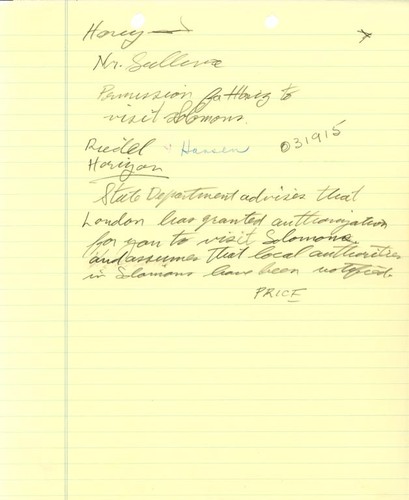 Mr. Sullivan
Permission for Horiz to
visit Solomons.
Riedel + Hansen 031915
Horizon
State Department advises that
London has granted authorization
for you to visit Solomons
and assumes that local authorities
in Solomons have been notified.
PRICE